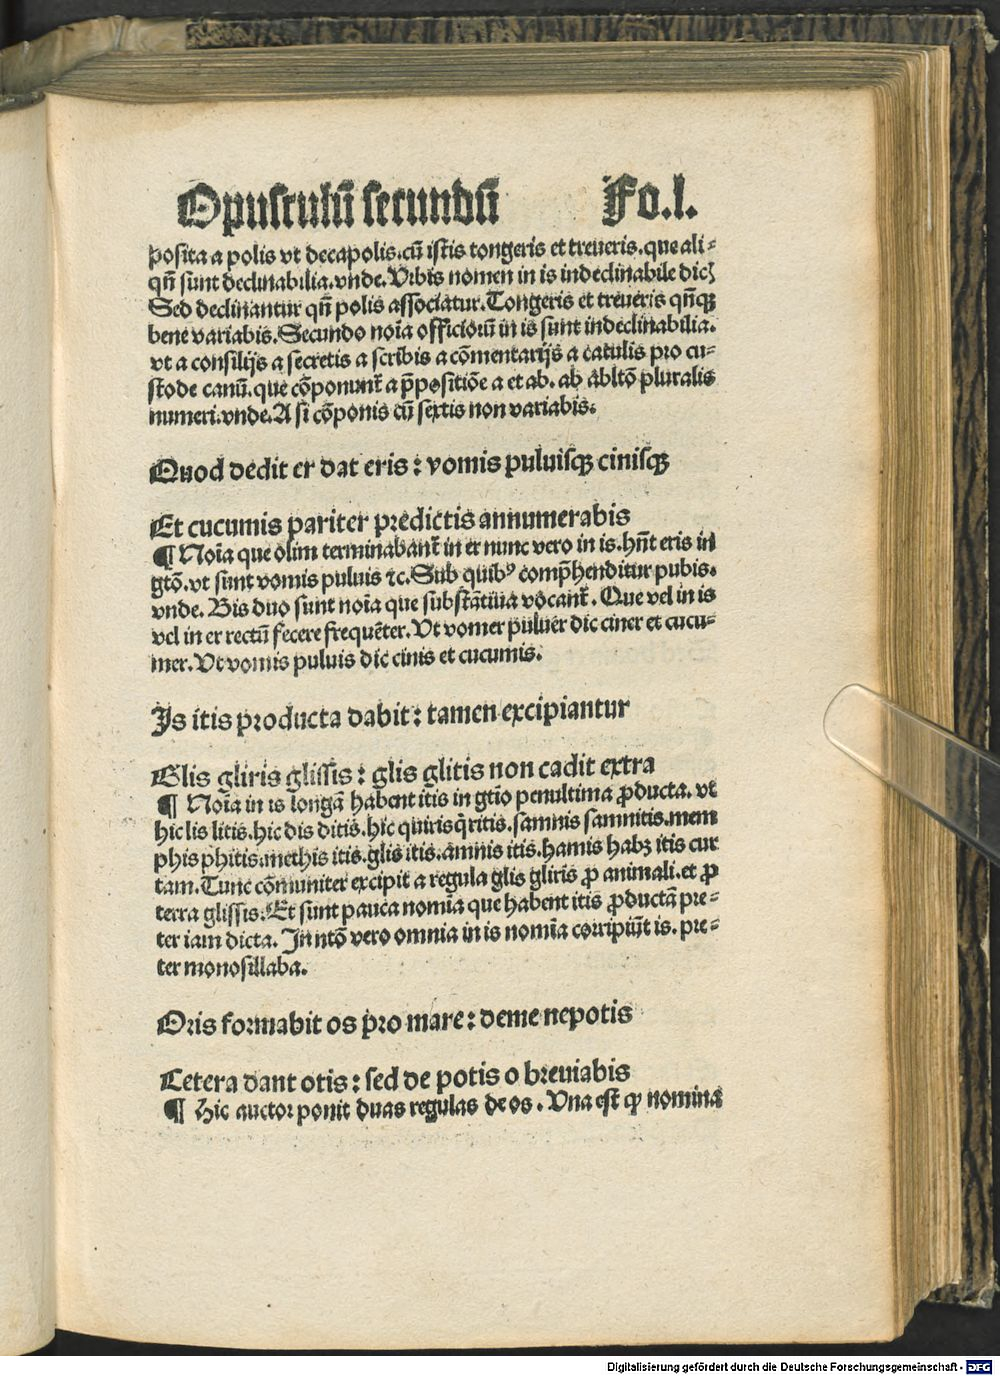 Opusculū secundū Fo.l.
posita a polis vt decapolis.cū istis tongeris et treueris.que ali⸗
qn̄ sunt declinabilia.vnde.Vrbis nomen in is indeclinabile dicꝫ
Sed declinantur qn̄ polis associatur.Tongeris et treueris qn̄qꝫ
bene variabis.Secundo noīa officiorū in is sunt indeclinabilia.
vt a consilijs a secretis a scribis a cōmentarijs a catulis pro cu⸗
stode canū.que cōponunt̄ a p̄positiōe a et ab. ab ābltō pluralis
numeri.vnde.A si cōponis cū sextis non variabis.
Quod dedit er dat eris : vomis puluisqꝫ cinisqꝫ
Et cucumis pariter predictis annumerabis
¶ Noīa que olim terminabant̄ in er nunc vero in is.hn̄t eris in
gtō.vt sunt vomis puluis ⁊c.Sub quibꝰ comp̄henditur pubis.
vnde. Bis duo sunt noīa que substātiua vocant̄. Que vel in is
vel in er rectū fecere frequēter.Vt vomer puluer dic ciner et cucu⸗
mer.Vt vomis puluis dic cinis et cucumis.
Is itis producta dabit : tamen excipiantur
Glis gliris glissis : glis glitis non cadit extra
¶ Noīa in is longā habent itis in gtīo penultima ꝓducta. vt
hic lis litis.hic dis ditis.hic quiris q̄ritis.samnis samnitis.mem
phis phitis.methis itis.glis itis.amnis itis.hamis habꝫ itis cur
tam.Tunc cōmuniter excipit a regula glis gliris ꝓ animali.et ꝓ
terra glissis.Et sunt pauca nomīa que habent itis ꝓductā pre⸗
ter iam dicta. In ntō vero omnia in is nomīa corripiūt is. pre⸗
ter monosillaba.
Oris formabit os pro mare : deme nepotis
Cetera dant otis : sed de potis o breuiabis
¶ Hic auctor ponit duas regulas de os . Vna est ꝙ nomina
Digitalisierung gefördert durch die Deutsche Forschungsgemeinschaft - DFG